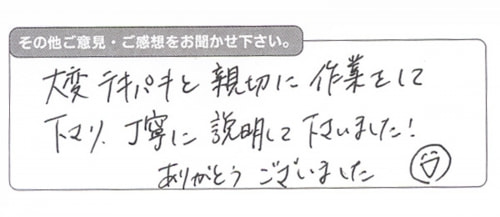 その他ご意見・ご感想をお聞かせ下さい。
大変テキパキと親切に作業をして
下さり、丁寧に説明して下さいました!
ありがとうございました